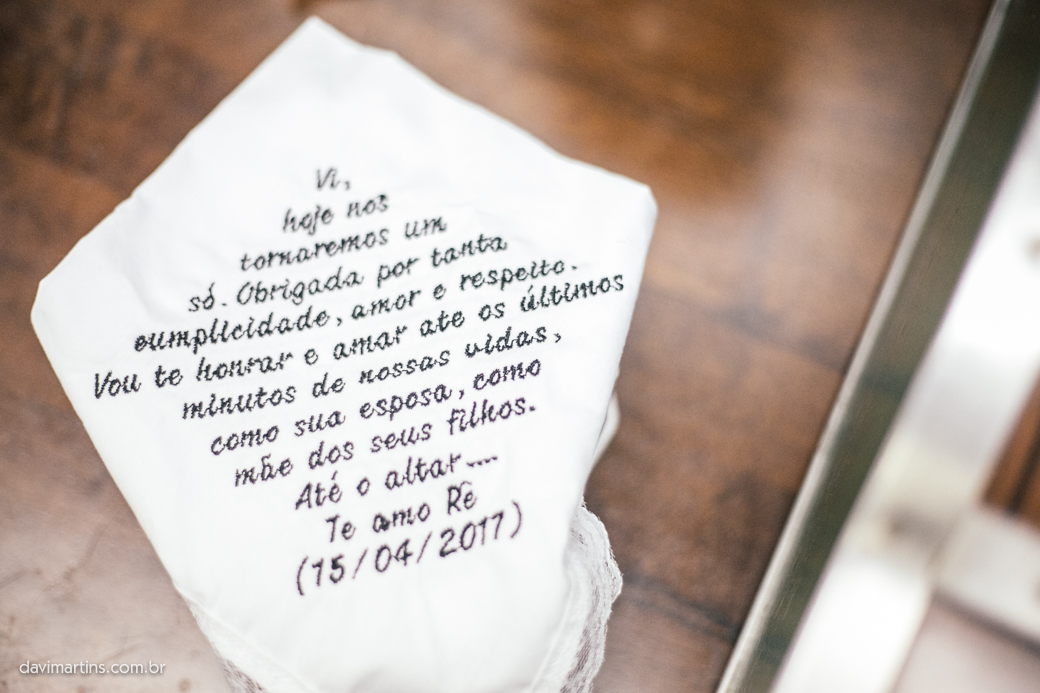 Vi,
hoje nos
tornaremos um
só. Obrigada por tanta
cumplicidade, amor e respeito.
Vou te honrar e amar ate os últimos
minutos de nossas vidas,
como sua esposa, como
mãe dos seus filhos.
Até o altar....
Te amo Rê
(15/04/2017)
davimartins.com.br